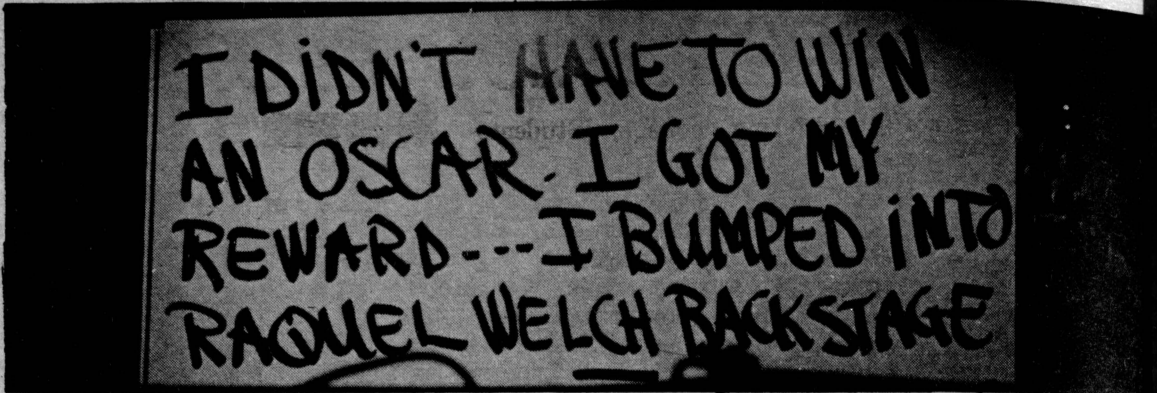 I DIDN'T HAVE TO WIN
AN OSCAR. I GOT MY
REWARD---I BUMPED INTO
RAQUEL WELCH BACKSTAGE